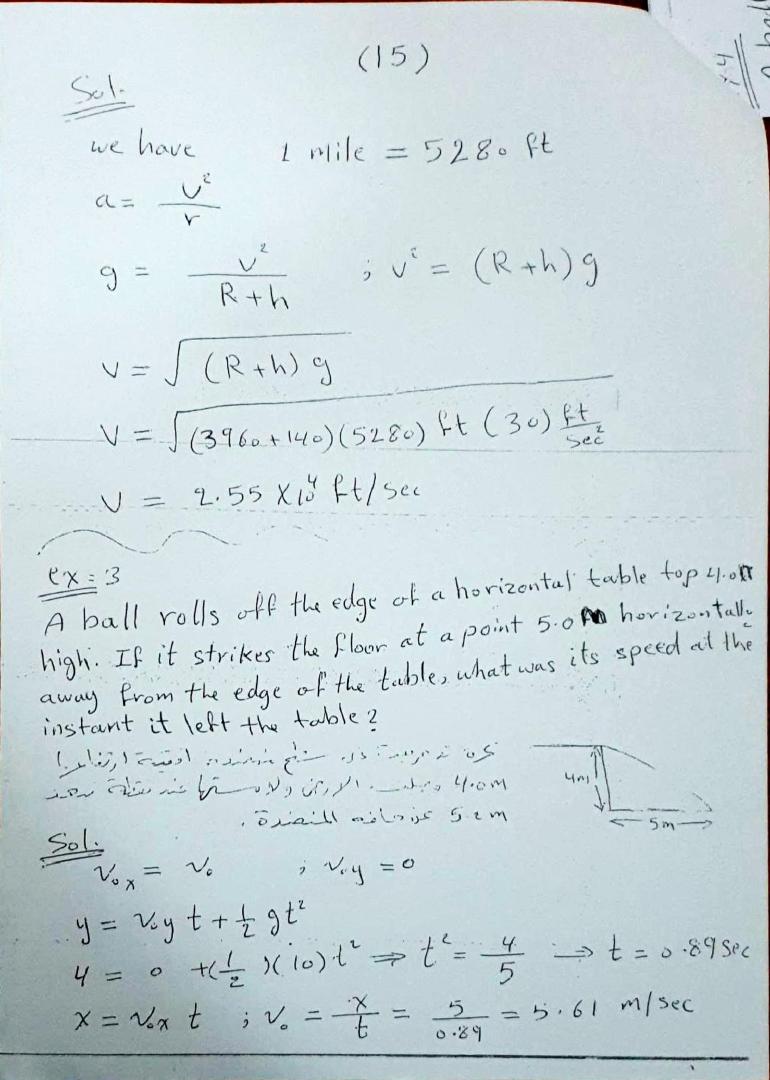 (15)
Sol.
we have 1 mile = 5280 ft
a = v²/r
g = v²/(R+h) ; v² = (R+h) g
v = √((R+h) g)
v = √((3960+140)(5280) ft (30) ft/sec²)
v = 2.55 X10⁴ ft/sec
ex = 3
A ball rolls off the edge of a horizontal table top 4.0m
high. If it strikes the floor at a point 5.0 m horizontally
away from the edge of the table, what was its speed at the
instant it left the table?
4.0m
5.0m عن حافه المنضدة.
4m
5m
Sol.
v₀x = v₀ ; v₀y = 0
y = v₀y t + ½ gt²
4 = 0 + (½)(10) t² ⇒ t² = 4/5 → t = 0.89 sec
x = v₀x t ; v₀ = x/t = 5/0.89 = 5.61 m/sec